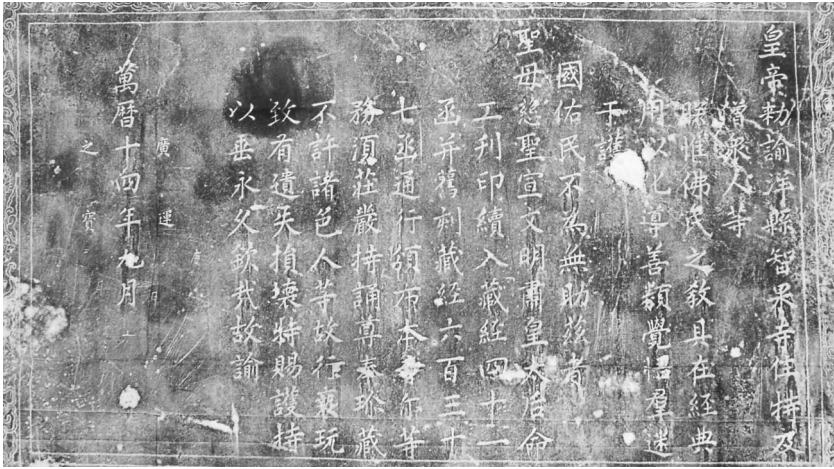 皇帝勅諭洋縣智果寺住持及
僧衆人等
朕惟佛氏之教具在經典
用以化導善類覺悟羣迷
于護
國佑民不為無助茲者
聖母慈聖宣文明肅皇太后命
工刊印續入藏經四十一
函并舊刻藏經六百三十
七函通行頒布本寺尔等
務須莊嚴持誦尊奉珍藏
不許諸色人等故行褻玩
致有遺失損壞特賜護持
以垂永久欽哉故諭
廣運
萬曆十四年九月
之寶